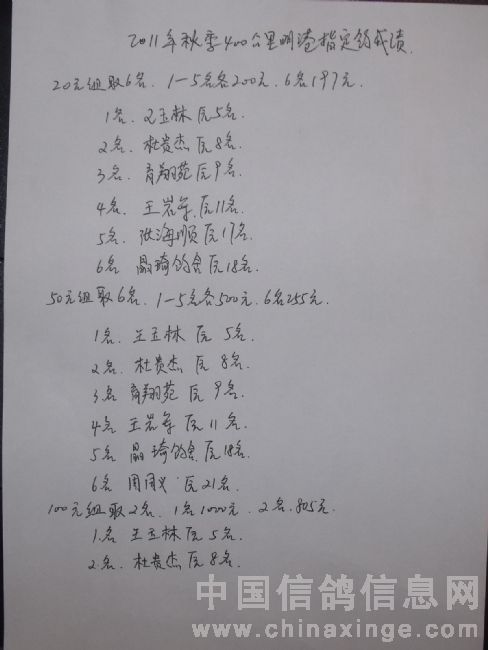 2011年秋季400公里鸣港指定鸽成绩.
20元组取6名. 1-5名各200元. 6名197元.
1名. 王玉林 厄5名.
2名. 杜贵杰 厄8名.
3名. 育翔苑 厄9名.
4名. 王岩军 厄11名.
5名. 海顺 厄17名.
6名. 晶琦鸽舍 厄18名.
50元组取6名. 1-5名各500元. 6名255元.
1名. 王玉林 厄 5名.
2名. 杜贵杰 厄 8名.
3名 育翔苑 厄 9名.
4名 王岩军 厄 11名.
5名 晶琦鸽舍 厄18名.
6名 周周义 厄21名.
100元组取2名. 1名1000元. 2名. 805元.
1名 王玉林 厄5名.
2名. 杜贵杰 厄8名.
中国信鸽信息网
www.chinaxinge.com